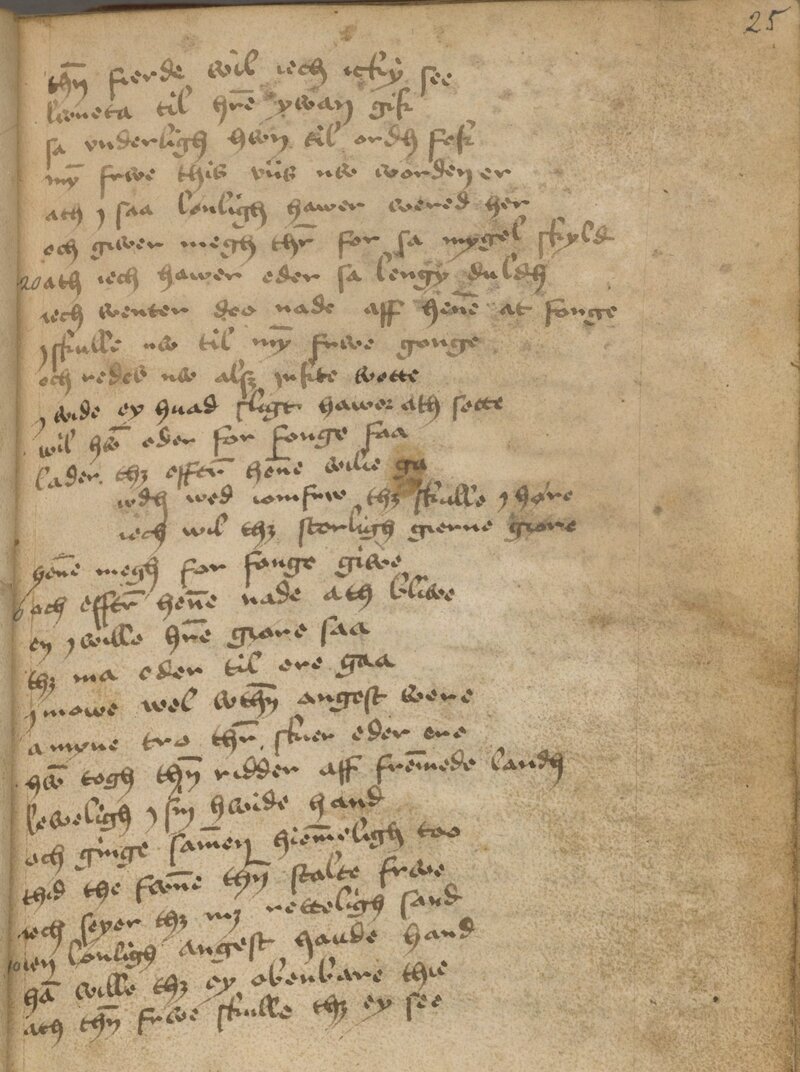 25
thn̄ fierde wil iech icky see
lwneta til hrē ywan gik
sa vnderligh hwn til ordh fek
my̅ frwe this viis nw worden er
ath j saa lønligh hawer wered her
och giwer megh thr̄ for sa mygel skyld
20 ath iech hawer eder sa lengy duldh
iech wenter dog nade aff hen̄e at fonge
j skulle nw til my̅ frwe gonge
och redes nw alsz inkte wette
j wide ey huad sligt hawer ath sette
wil hw̄ eder for fonge faa
lader thz efftr̄ hen̄e wilie ga
wdh wed iomfrw thz skulle j høre
iech wil thz storligh gierne giøre
hen̄e megh for fonge giwe
och efftr̄ hen̄e nade ath bliwe
en j wille hrē giøre saa
thz ma eder til ere gaa
j mowe wel wthn̄ angest were
a myne tro thr̄ sker eder ere
hw̄ togh thn̄ ridder aff frem̄ede landh
leweligh j sin hwide hand
och ginge sam̄en hiem̄eligh too
thid the fwn̄e thn̄ stolte frwe
iech seyer thz mz retteligh sand
10 ien lønligh angest haude hand
hā wille thz ey obenbare thie
ath thn̄ frwe skulle thz ey see